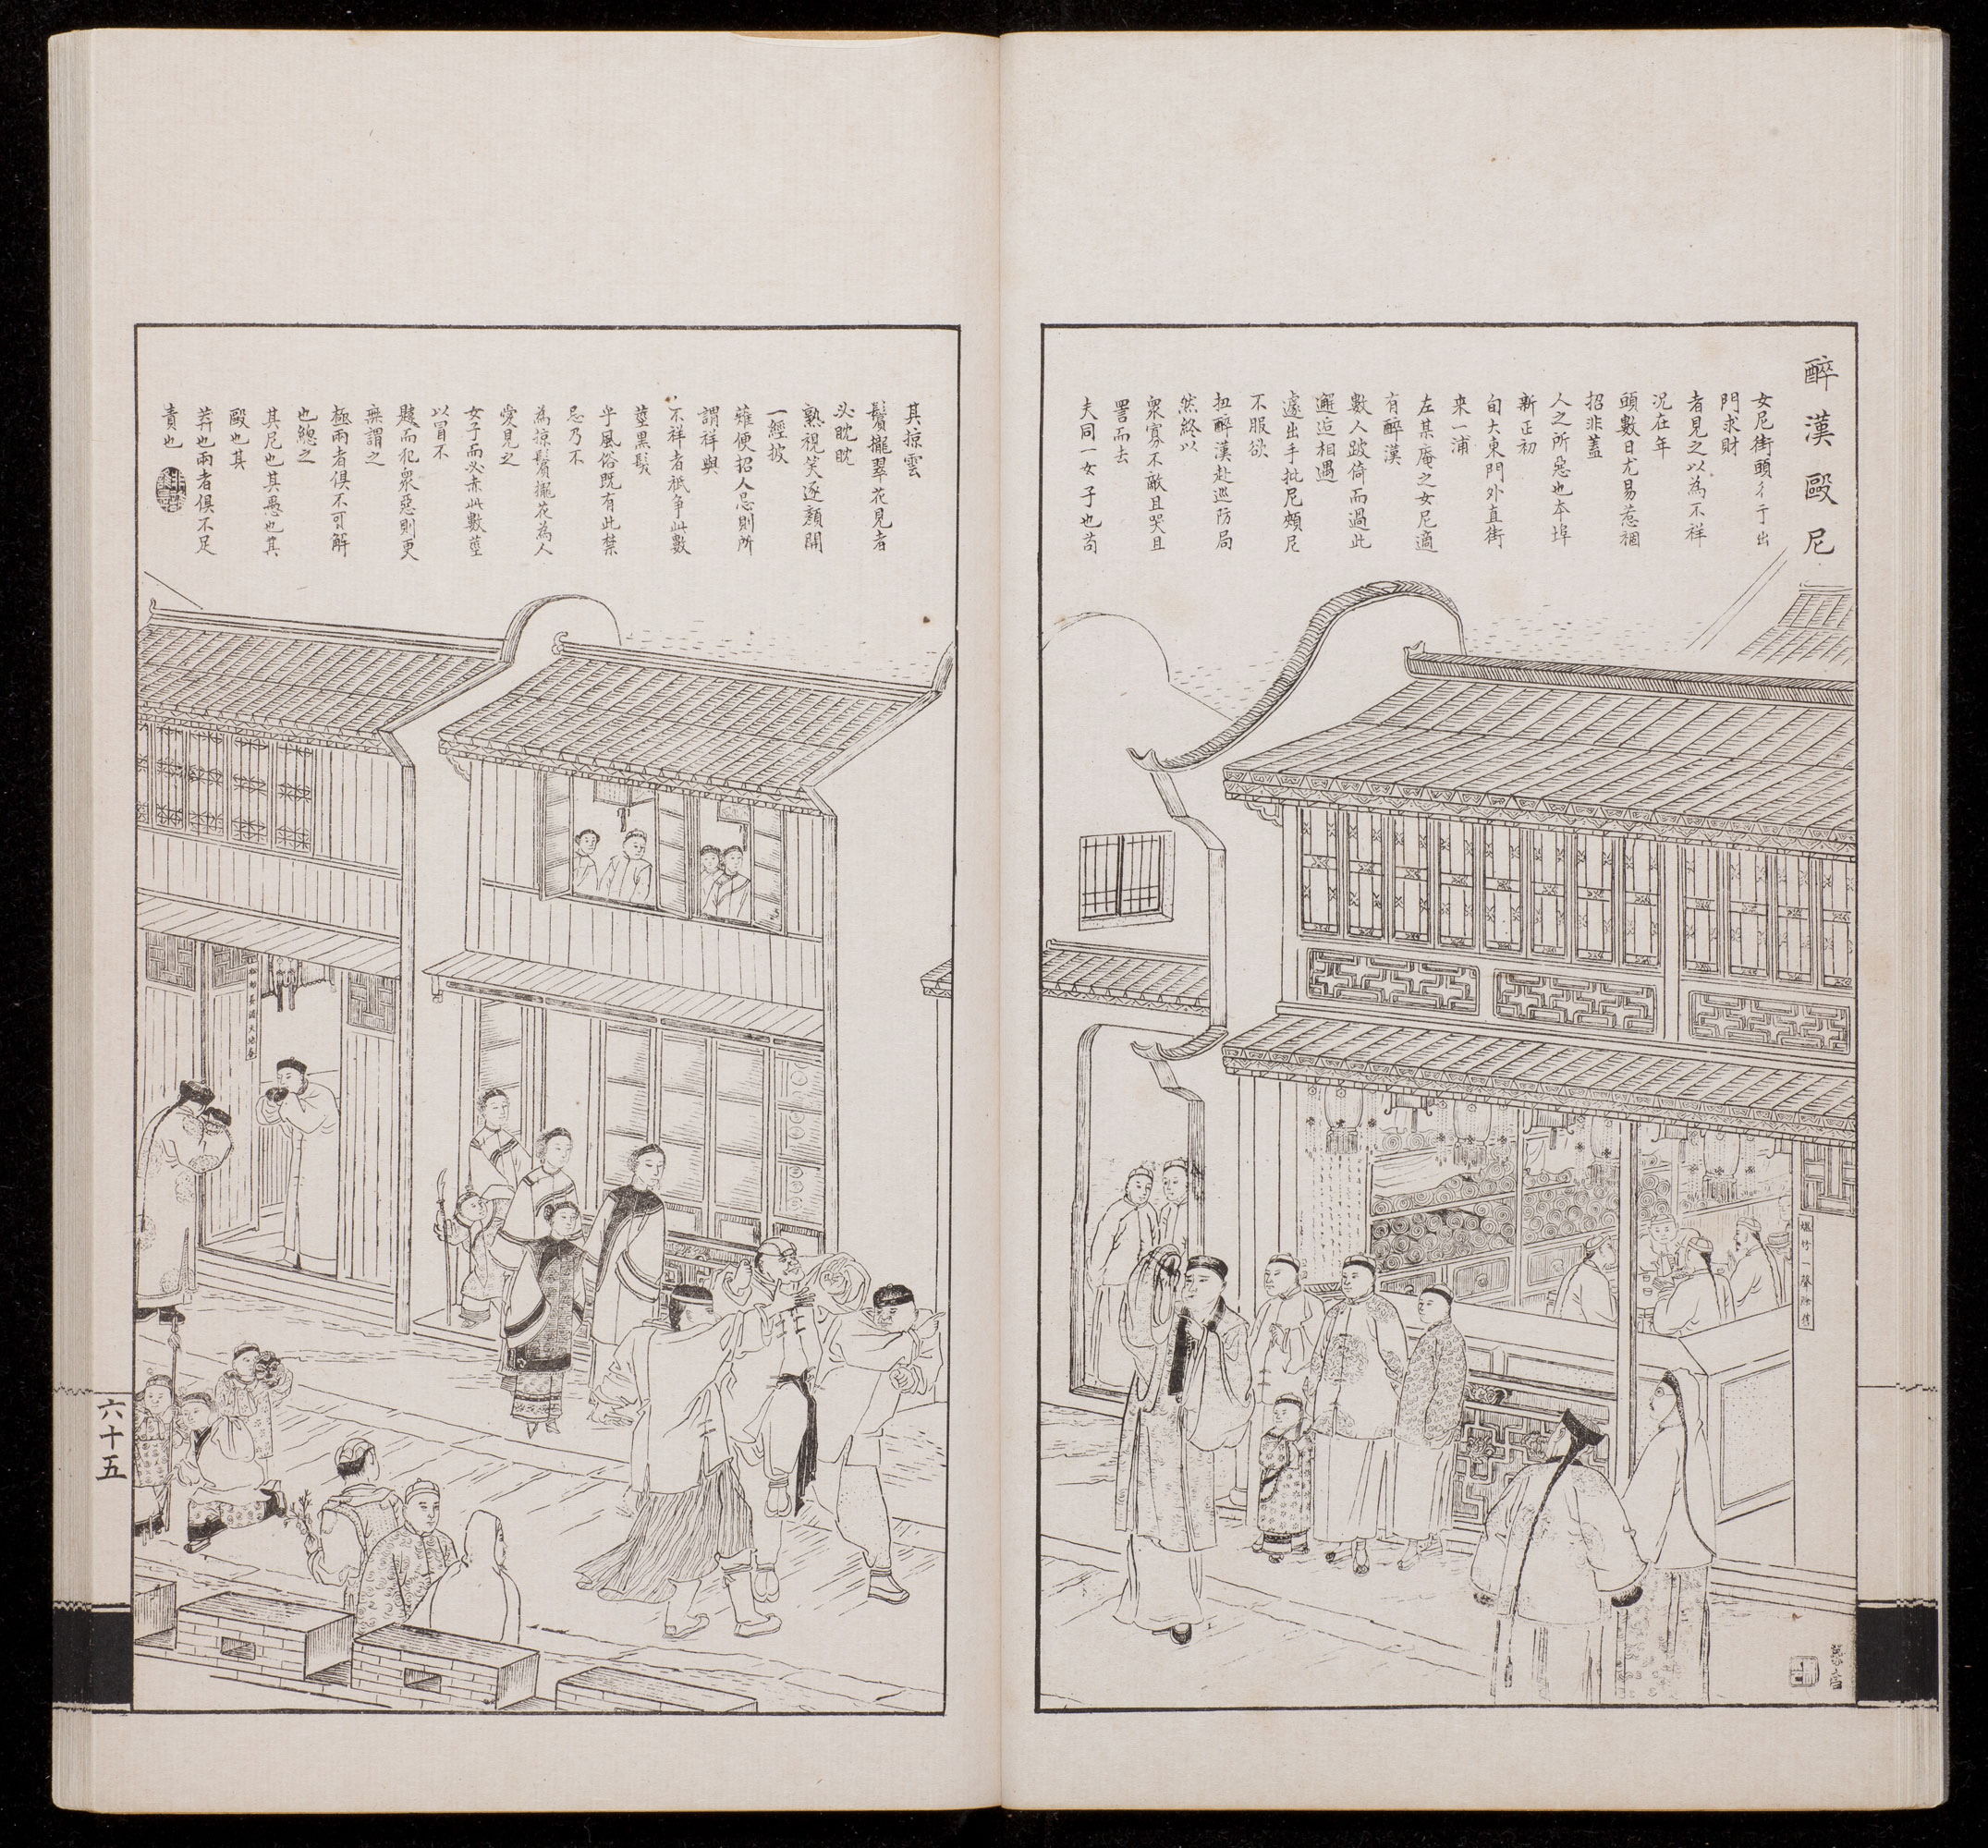 醉漢毆尼
女尼街頭彳亍出
門求財
者見之以為不祥
况在年
頭數日尤易惹禍
招非蓋
人之所惡也本埠
新正初
旬大東門外直街
来一浦
左某庵之女尼適
有醉漢
數人跛倚而過此
邂逅相遇
遽出手批尼頰尼
不服欲
扭醉漢赴巡防局
然終以
衆寡不敵且哭且
詈而去
夫同一女子也苟
其掠雲
鬢攏翠花見者
必眈眈
熟視笑逐顏開
一經披
薙便招人忌則所
謂祥與
不祥者祇争此數
莖黑髮
乎風俗既有此禁
忌乃不
為掠鬢攏花為人
愛見之
女子而必赤此數莖
以冒不
韙而犯衆惡則更
無謂之
極兩者俱不可解
也總之
其尼也其愚也其
毆也其
莽也兩者俱不足
責也
爆竹一聲除舊
六十五